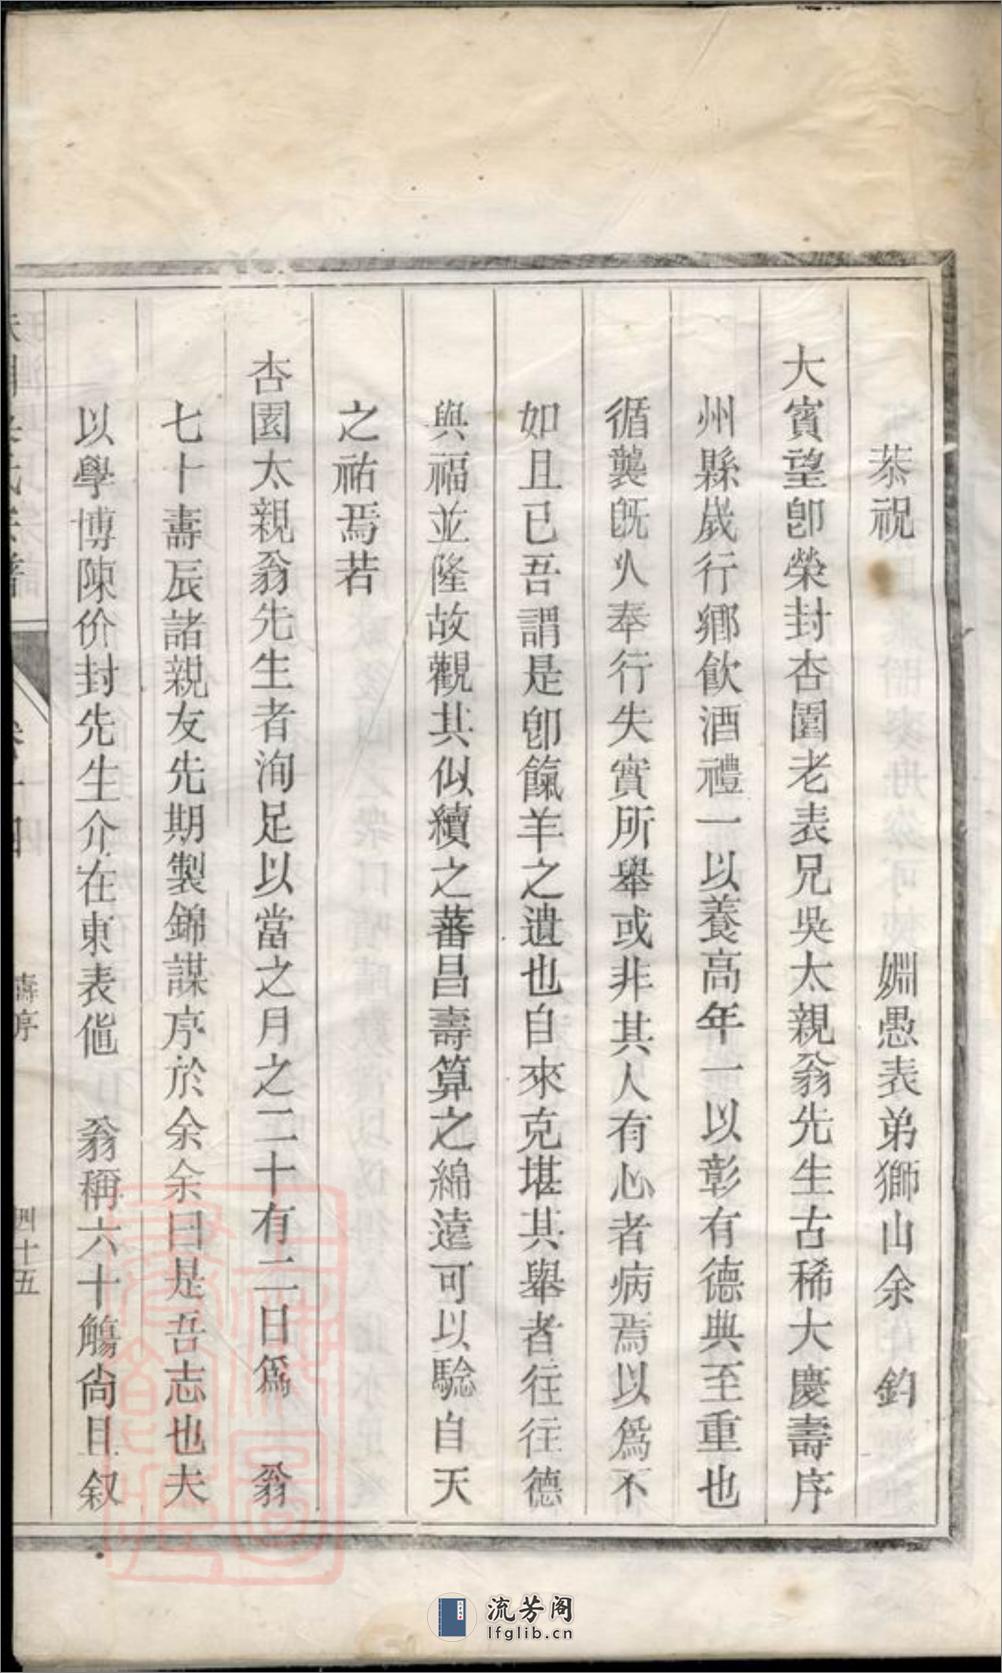 恭祝　姻愚表弟獅山余　鈞
大賓望卽榮封杏園老表兄吳太親翁先生古稀大慶壽序
州縣歲行鄉飲酒禮一以養高年一以彰有德典至重也
循襲旣久奉行失實所舉或非其人有心者病焉以爲不
如且已吾謂是卽餼羊之遺也自來克堪其舉者往往德
與福並隆故觀其似續之蕃昌壽算之綿遠可以驗自天
之祐焉若
杏園太親翁先生者洵足以當之月之二十有二日爲　翁
七十壽辰諸親友先期製錦謀序於余余曰是吾志也夫
以學博陳价封先生介在東表偹　翁稱六十觴尙且叙
氏宗譜
卷十四
壽序
四十五
流芳阁
lfglib.cn